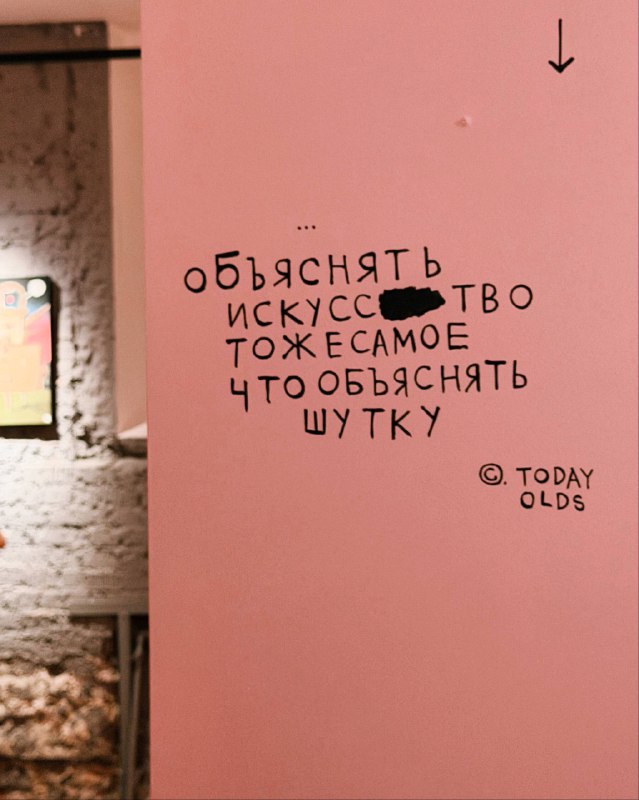 ...
ОБЪЯСНЯТЬ
ИСКУСС ТВО
ТОЖЕ САМОЕ
ЧТО ОБЪЯСНЯТЬ
ШУТКУ
©. TODAY
OLDS